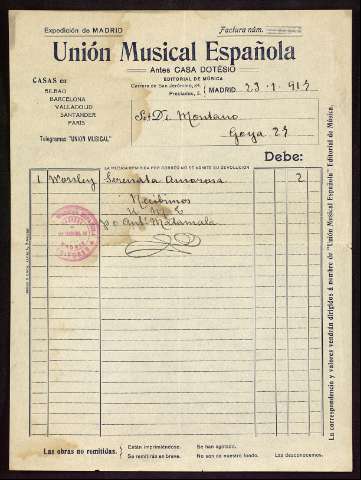 Expedición de MADRID
Factura núm.
Unión Musical Española
Antes CASA DOTESIO
EDITORIAL DE MÚSICA
Carrera de San Jerónimo, 34.
Preciados, 5.
CASAS en
BILBAO
BARCELONA
VALLADOLID
SANTANDER
PARÍS
MADRID, 23-1-915
Sr. D. Montano
Goya 23
Telegramas "UNION MUSICAL"
Debe:
LA MÚSICA REMITIDA POR CORREO NO SE ADMITE SU DEVOLUCIÓN
1 Worsley Serenata Amorosa 2
Recibimos
U. M. E.
p o Antº Matamala
Las obras no remitidas.
Están imprimiéndose.
Se remitirán en breve.
Se han agotado.
No son de nuestro fondo.
Las desconocemos.
La correspondencia y valores vendrán dirigidos á nombre de "Unión Musical Española" Editorial de Música.